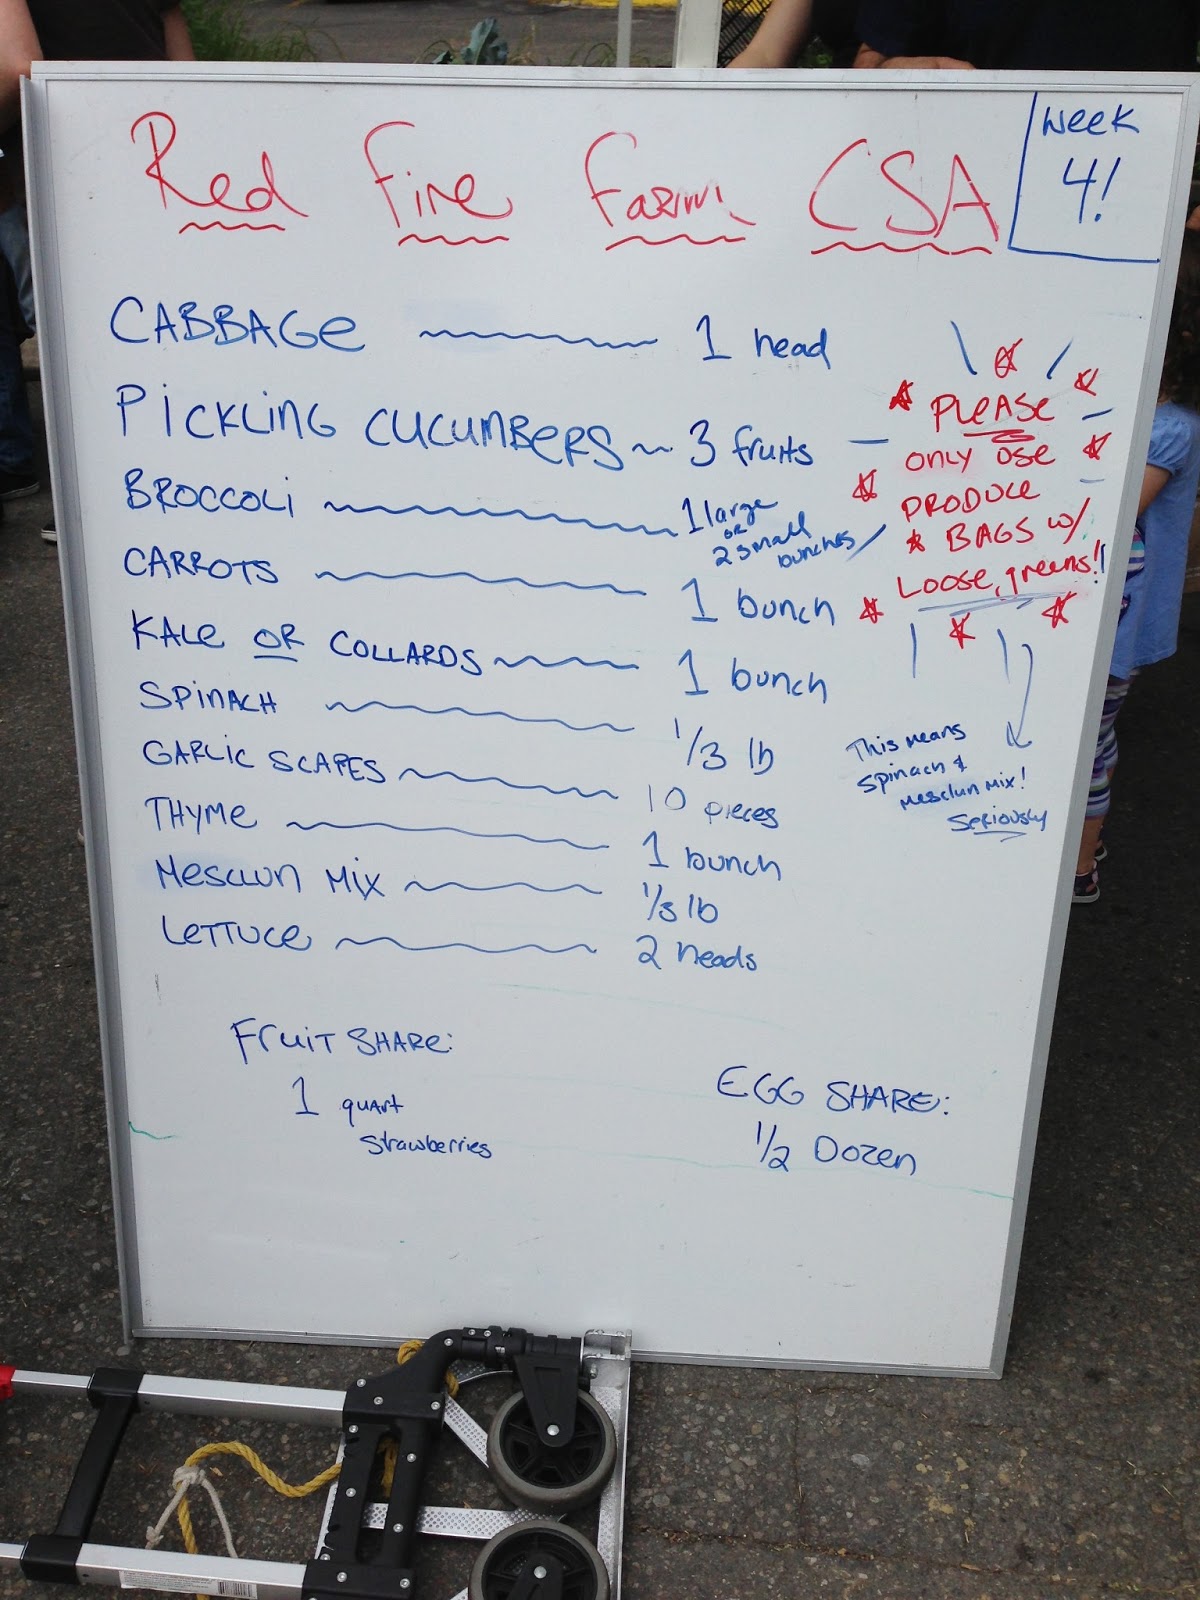 Red Fire Farm CSA
Week
4!
CABBAGe 1 head
PICKLING CUCUMBeRS 3 fruits
BROCCOLi 1 large
OR
2 small
bunches
CARROTS 1 bunch
KALe OR COLLARDS 1 bunch
SPINACH 1/3 lb
GARLIC SCAPES 10 pieces
THYMe 1 bunch
Mesclun Mix 1/3 lb
LeTTUCe 2 heads
PLEASe
ONLY USe
PRODUCe
BAGS w/
LOOSe, greens!!
This means
Spinach &
Mesclun Mix!
SeRiOUSly
FruiT SHARe:
1 quart
strawberries
EGG SHARe:
1/2 Dozen